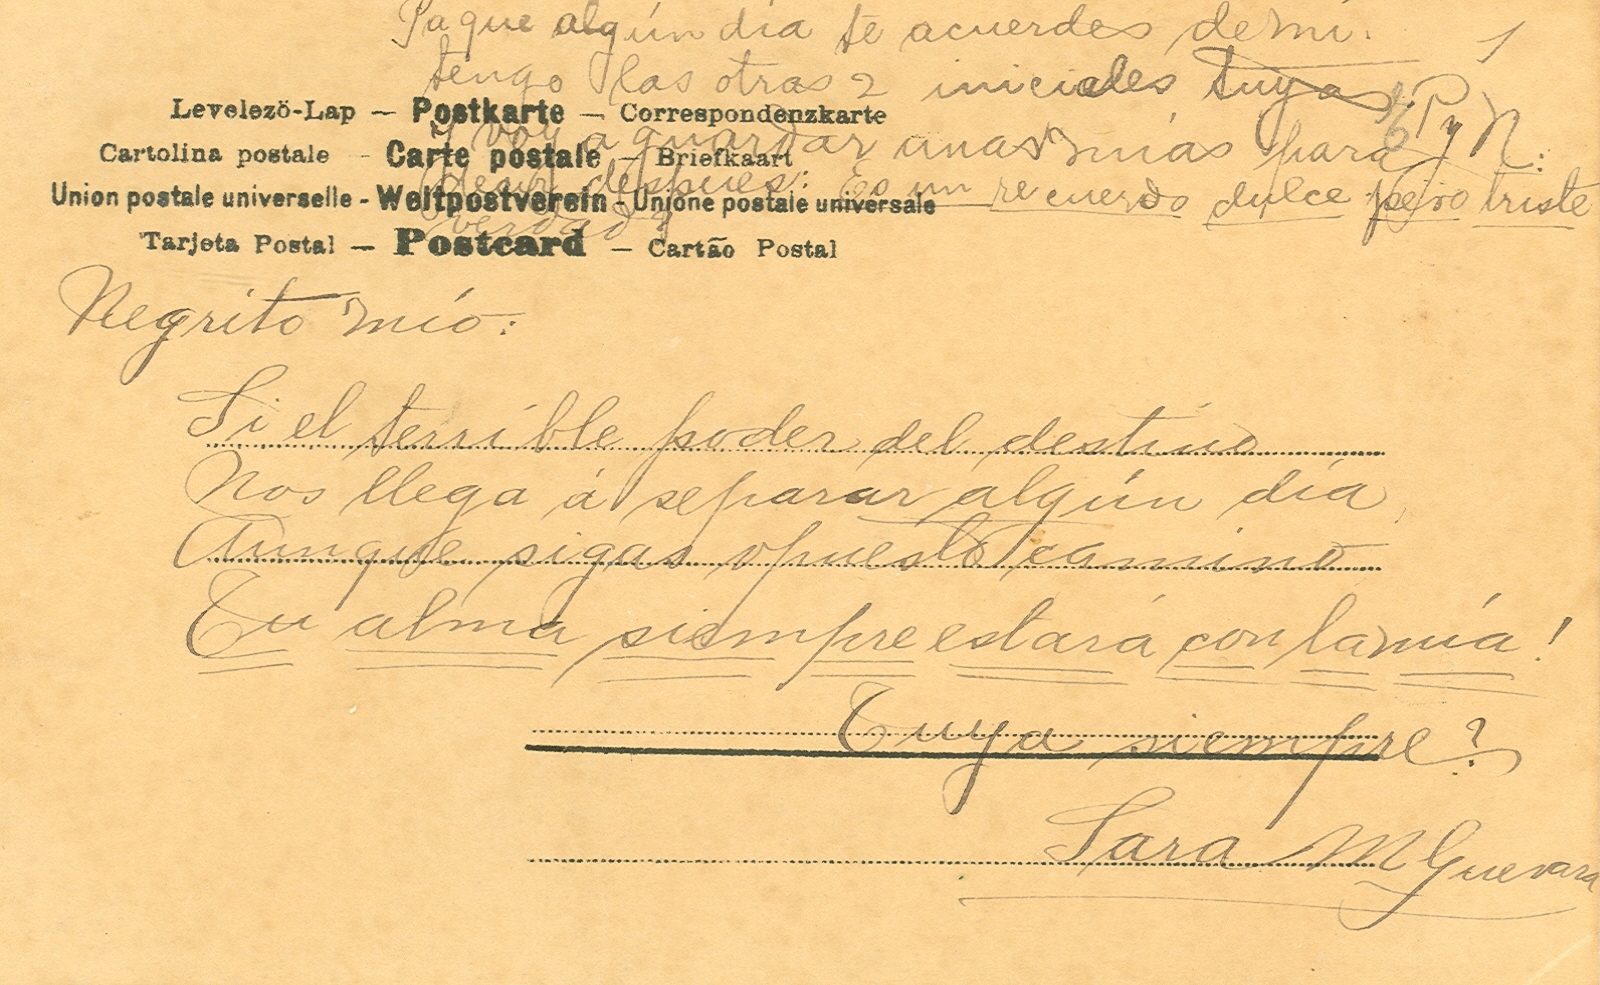 Pa que algún día te acuerdes de mí. 1
tengo las otras 2 iniciales tuyas: P y N:
Y voy a guardar unas mías para
después: Es un recuerdo dulce pero triste
verdad?
Levelező-Lap — Postkarte — Correspondenzkarte
Cartolina postale - Carte postale - Briefkaart
Union postale universelle - Weltpostverein - Unione postale universale
Tarjeta Postal — Postcard — Cartão Postal
Negrito mío:
Si el terrible poder del destino
Nos llega á separar algún día,
Aunque sigas opuesto camino
Tu alma siempre estará con la mía!
Tuya siempre?
Sara M Guevara